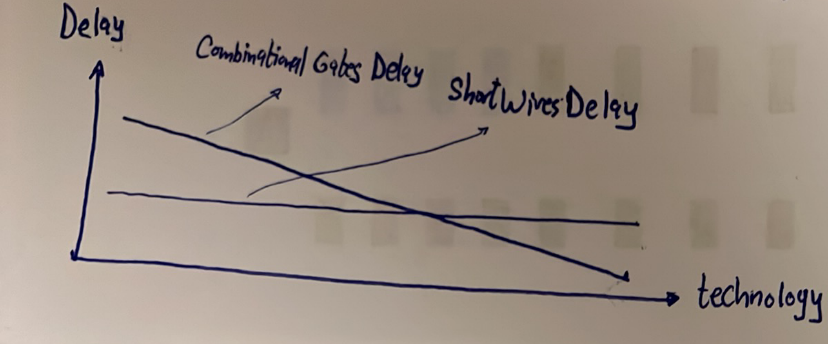 Delay
Combinational Gates Delay
Short Wires Delay
technology